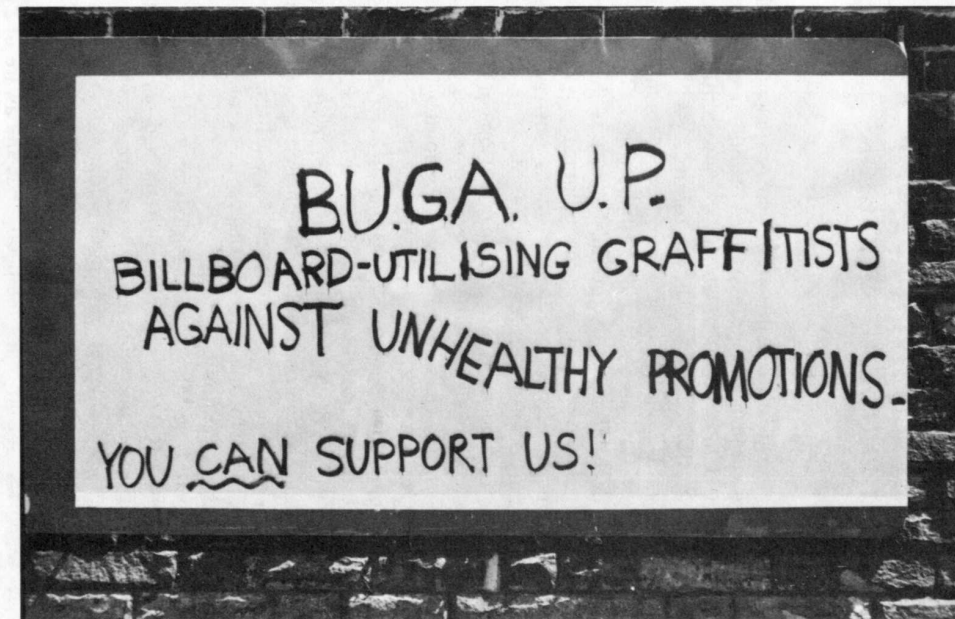 B.U.G.A. U.P.
BILLBOARD-UTILISING GRAFFITISTS
AGAINST UNHEALTHY PROMOTIONS.
YOU CAN SUPPORT US!